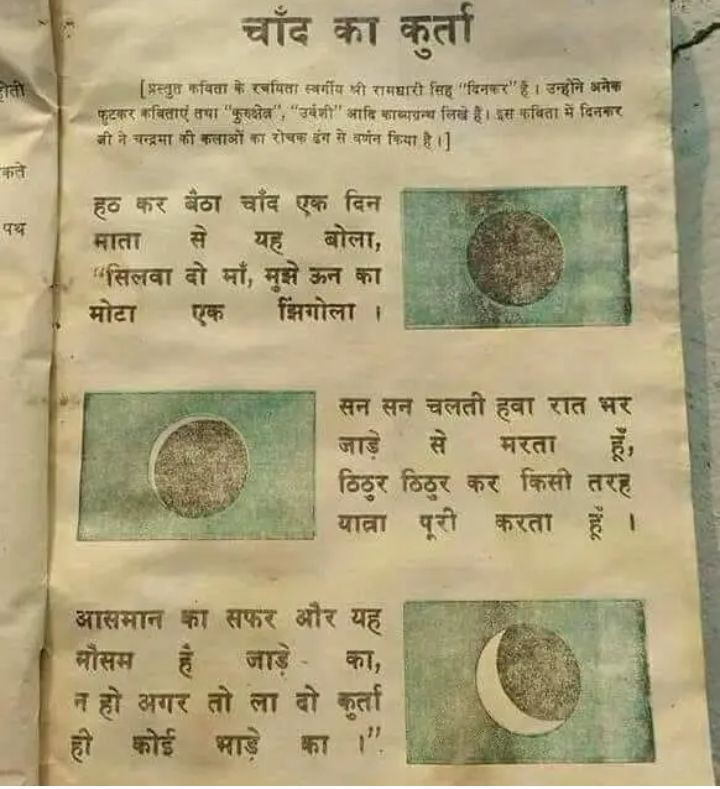 चाँद का कुर्ता
[प्रस्तुत कविता के रचयिता स्वर्गीय श्री रामधारी सिंह "दिनकर" हैं। उन्होंने अनेक
फुटकर कविताएं तथा "कुरुक्षेत्र", "उर्वशी" आदि काव्यग्रन्थ लिखे हैं। इस कविता में दिनकर
जी ने चन्द्रमा की कलाओं का रोचक ढंग से वर्णन किया है।]
हठ कर बैठा चाँद एक दिन
माता से यह बोला,
"सिलवा दो माँ, मुझे ऊन का
मोटा एक झिंगोला ।
सन सन चलती हवा रात भर
जाड़े से मरता हूँ,
ठिठुर ठिठुर कर किसी तरह
यात्रा पूरी करता हूँ ।
आसमान का सफर और यह
मौसम है जाड़े का,
न हो अगर तो ला दो कुर्ता
ही कोई भाड़े का ।".
पथ